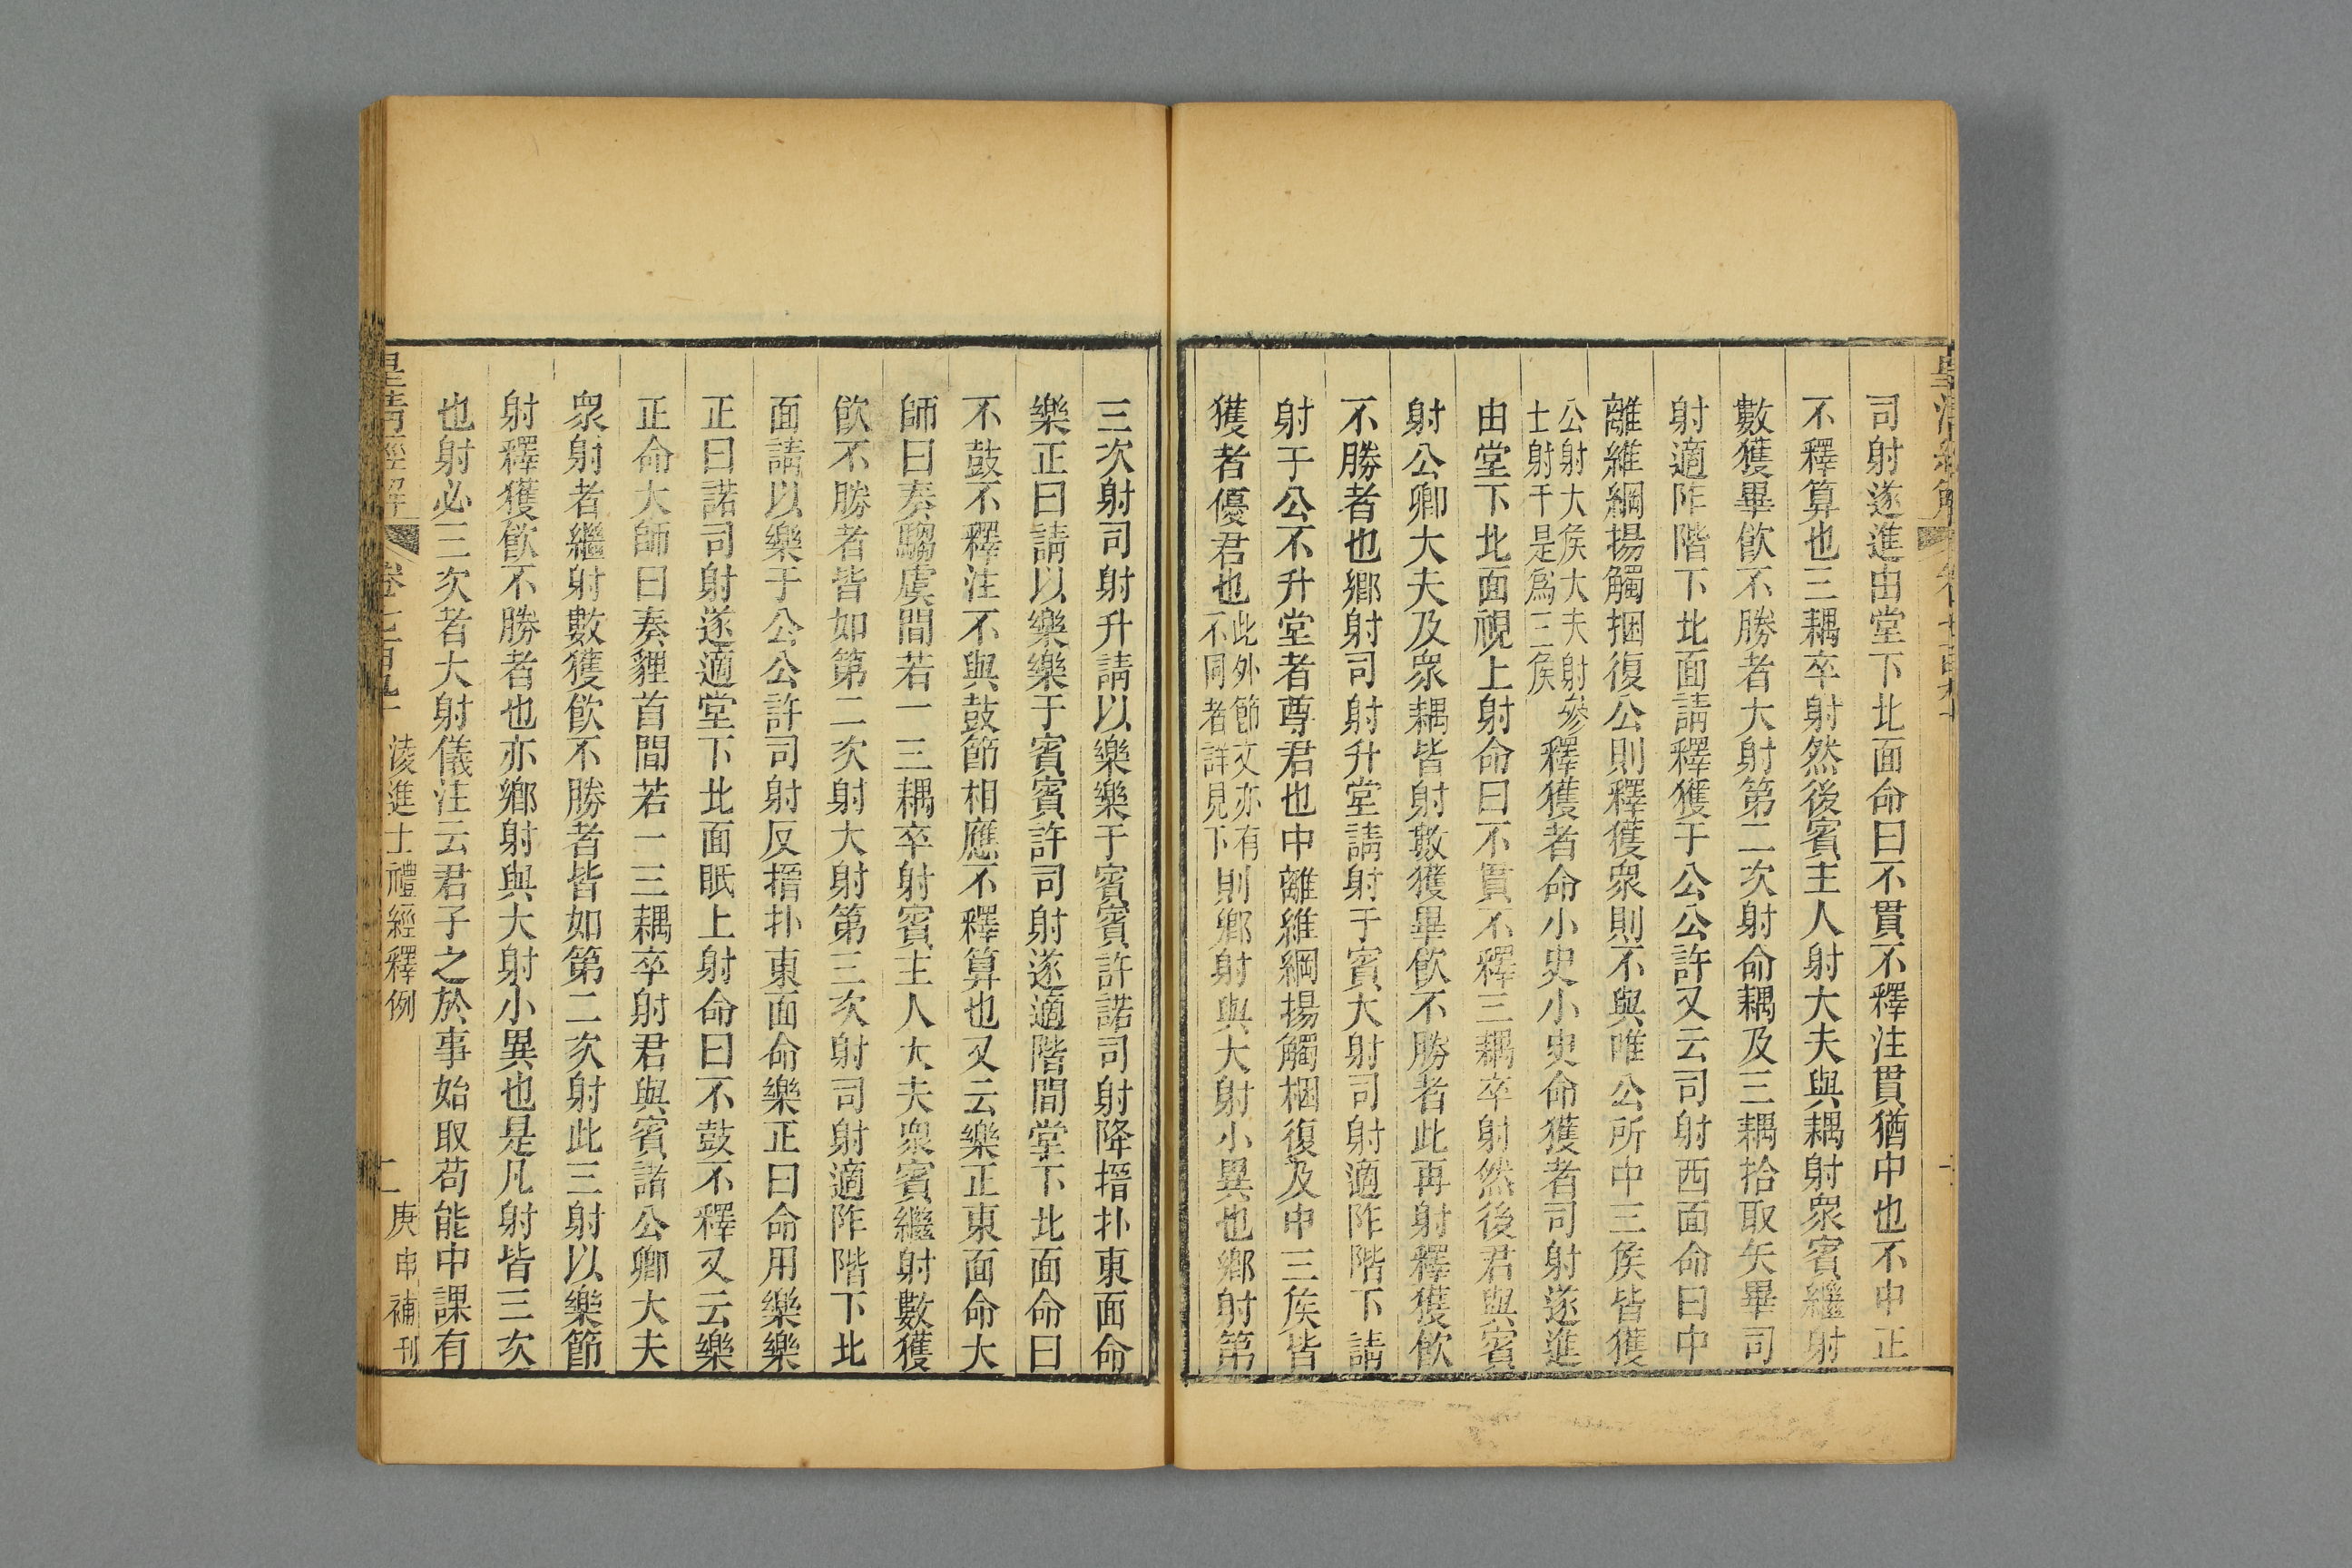 司射遂進由堂下北面命曰不貫不釋注貫猶中也不中正
不釋算也三耦卒射然後賓主人射大夫與耦射眾賓繼射
數獲畢飮不勝者大射第二次射命耦及三耦拾取矢畢司
射適阼階下北面請釋獲于公公許又云司射西面命曰中
離維綱揚觸捆復公則釋獲眾則不與唯公所中三矦皆獲
公射大矦大夫射參
士射干是爲三矦
釋獲者命小史小史命獲者司射遂進
由堂下北面視上射命曰不貫不釋三耦卒射然後君與賓
射公卿大夫及眾耦皆射數獲畢飮不勝者此再射釋獲飮
不勝者也鄉射司射升堂請射于賓大射司射適阼階下請
射于公不升堂者尊君也中離維綱揚觸梱復及中三矦皆
獲者優君也
此外節文亦有
不同者詳見下
則鄉射與大射小異也鄉射第
三次射司射升請以樂樂于賓賓許諾司射降搢扑東面命
樂正曰請以樂樂于賓賓許司射遂適階間堂下北面命曰
不鼓不釋注不與鼓節相應不釋算也又云樂正東面命大
師曰奏騶虞間若一三耦卒射賓主人大夫眾賓繼射數獲
飮不勝者皆如第二次射大射第三次射司射適阼階下北
面請以樂于公公許司射反搢扑東面命樂正曰命用樂樂
正曰諾司射遂適堂下北面眂上射命曰不鼓不釋又云樂
正命大師曰奏貍首間若一三耦卒射君與賓諸公卿大夫
眾射者繼射數獲飮不勝者皆如第二次射此三射以樂節
射釋獲飮不勝者也亦鄉射與大射小異也是凡射皆三次
也射必三次者大射儀注云君子之於事始取苟能中課有
皇清經解 卷七百九十 淩進士禮經釋例 二 庚申補刊